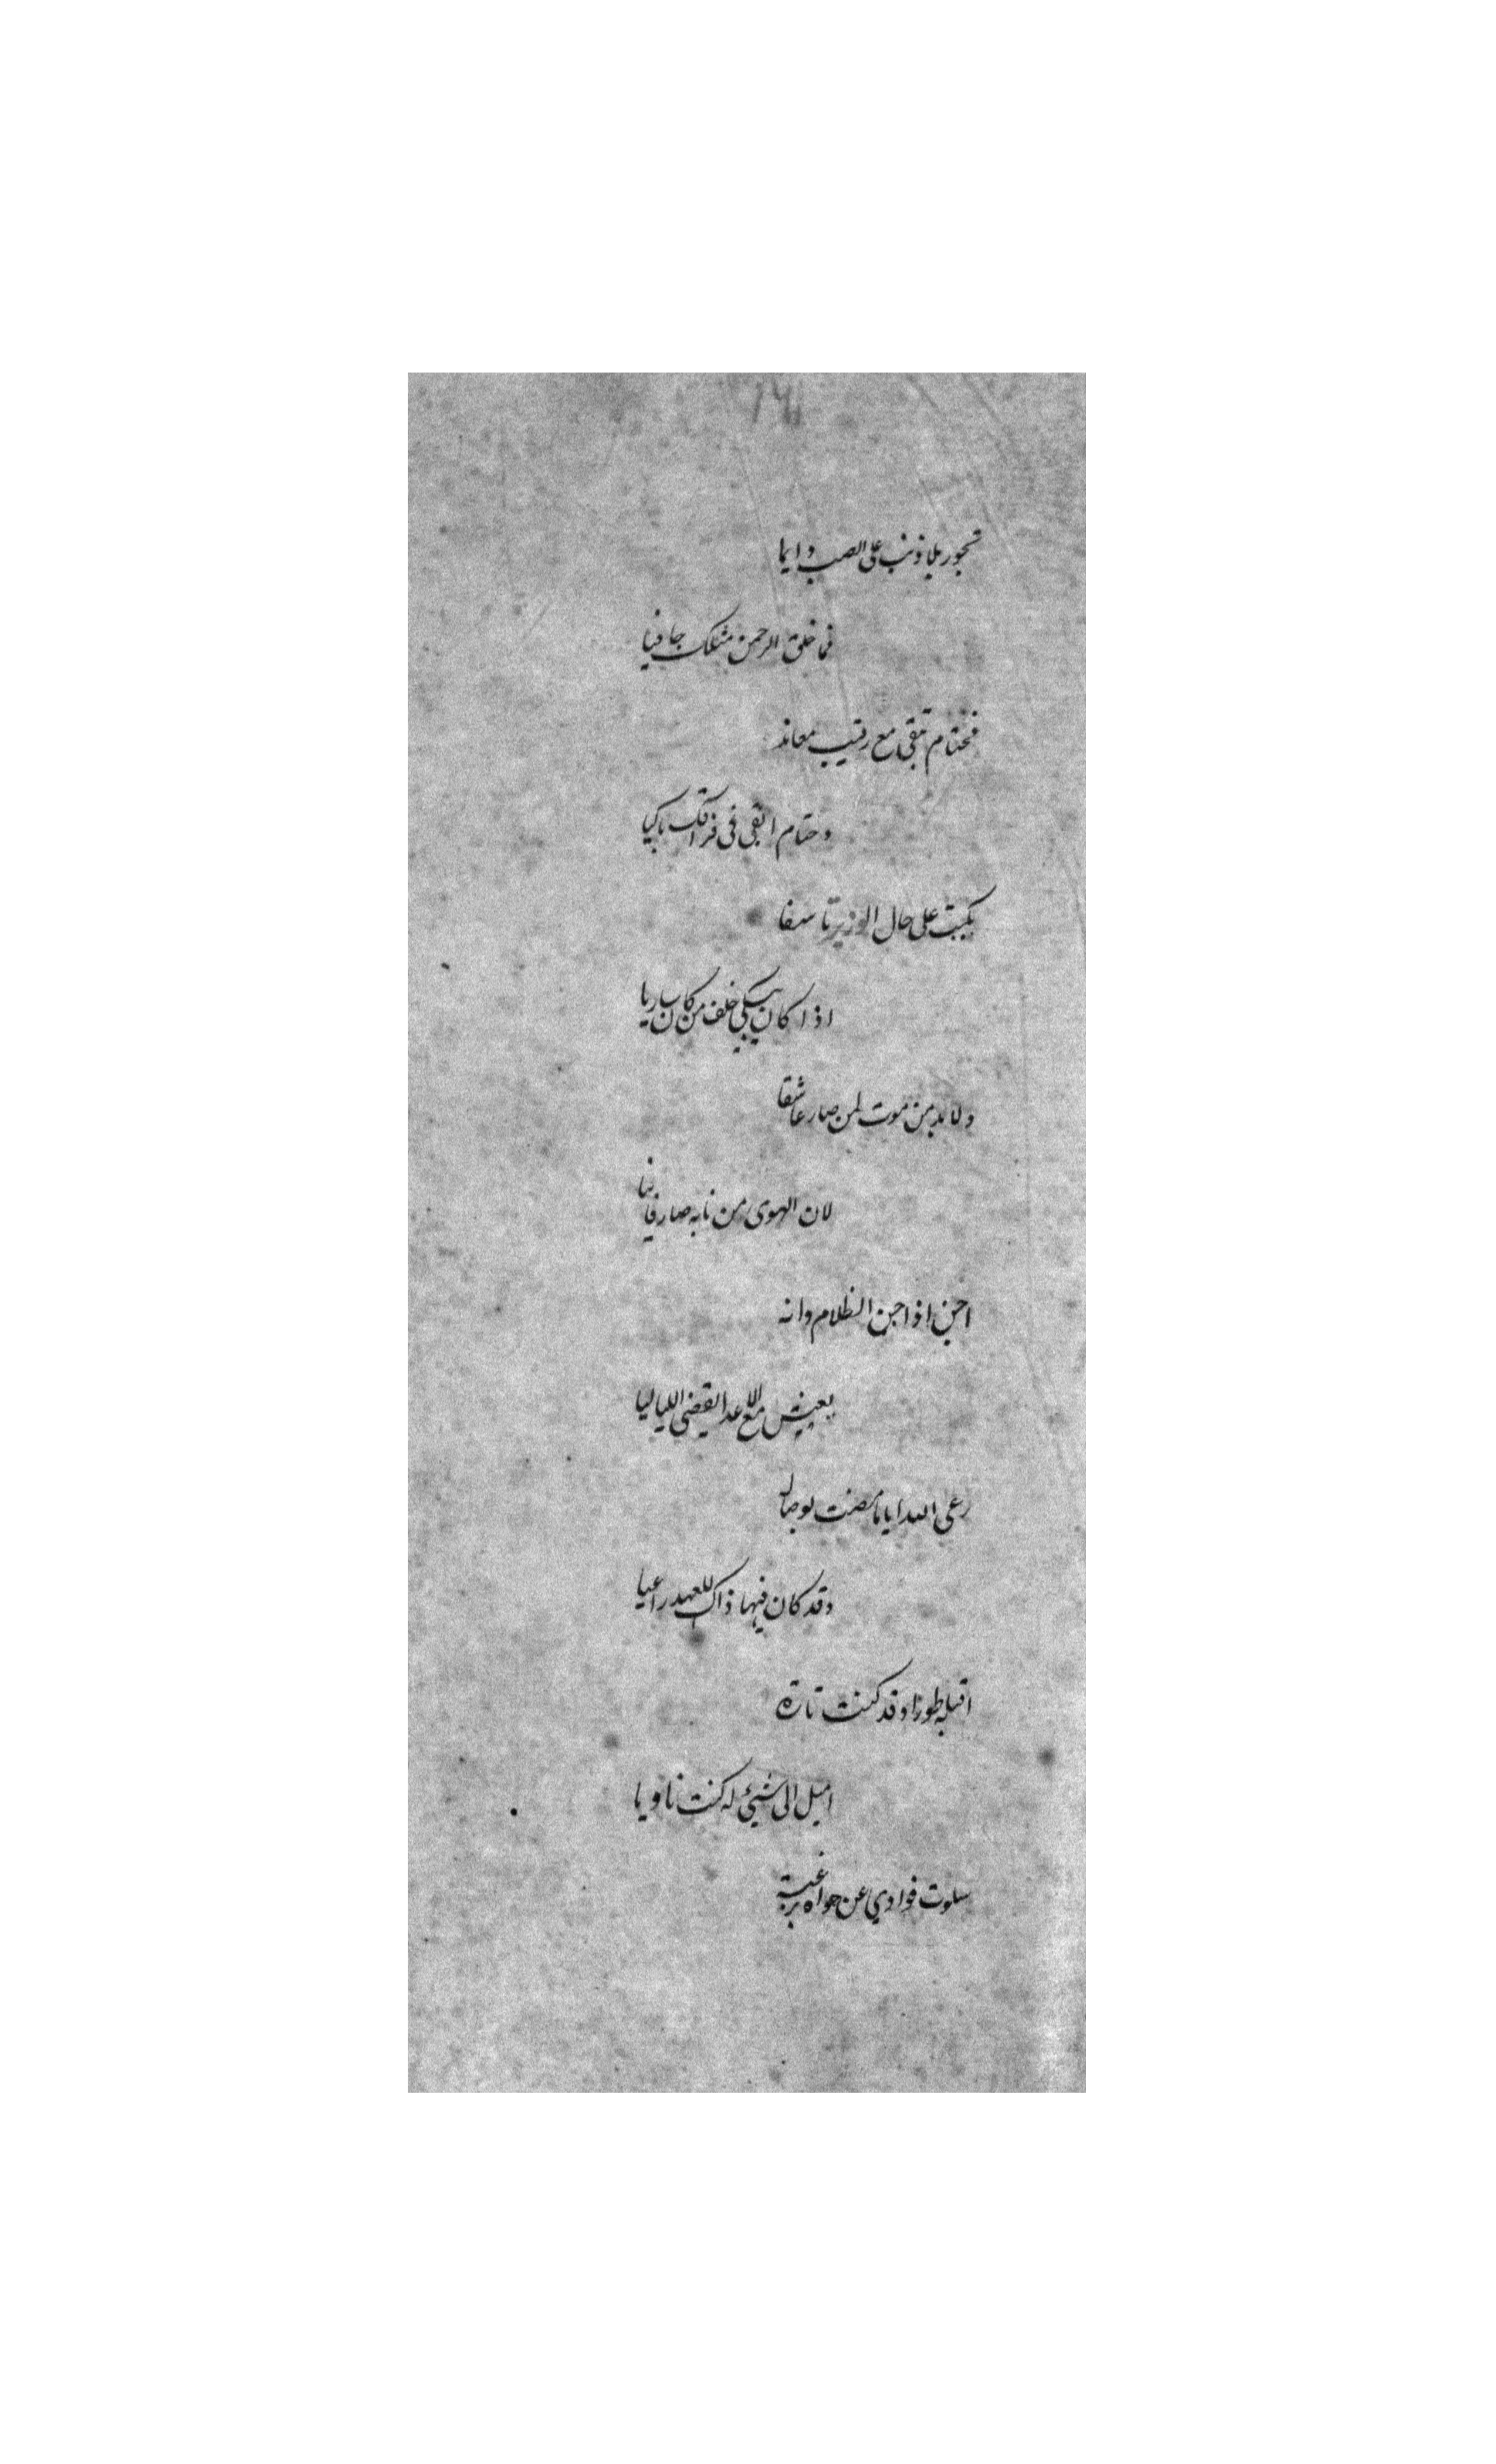 تجور بلا ذنب على الصب دايما
فما خلق الرحمن مثلك جافيا
فحتام تبقى مع رقيب معاند
وحتام ابقى فى فراقك باكيا
بكيت على حال الوزير تاسفا
اذا كان يبكي خلف من كان ساريا
ولا بد من موت لمن صار عاشقا
لان الهوى من نابه صار فانيا
احن اذا جن الظلام وانه
يعيش مع الاعدا يقضى اللياليا
رعى الله اياما مضت بوصال
وقد كان فيها ذاك للعهد راعيا
اقبله طورا وقد كنت تارة
اميل الى شيئ له كنت ناويا
سلوت فوادي عن هواه برغبة